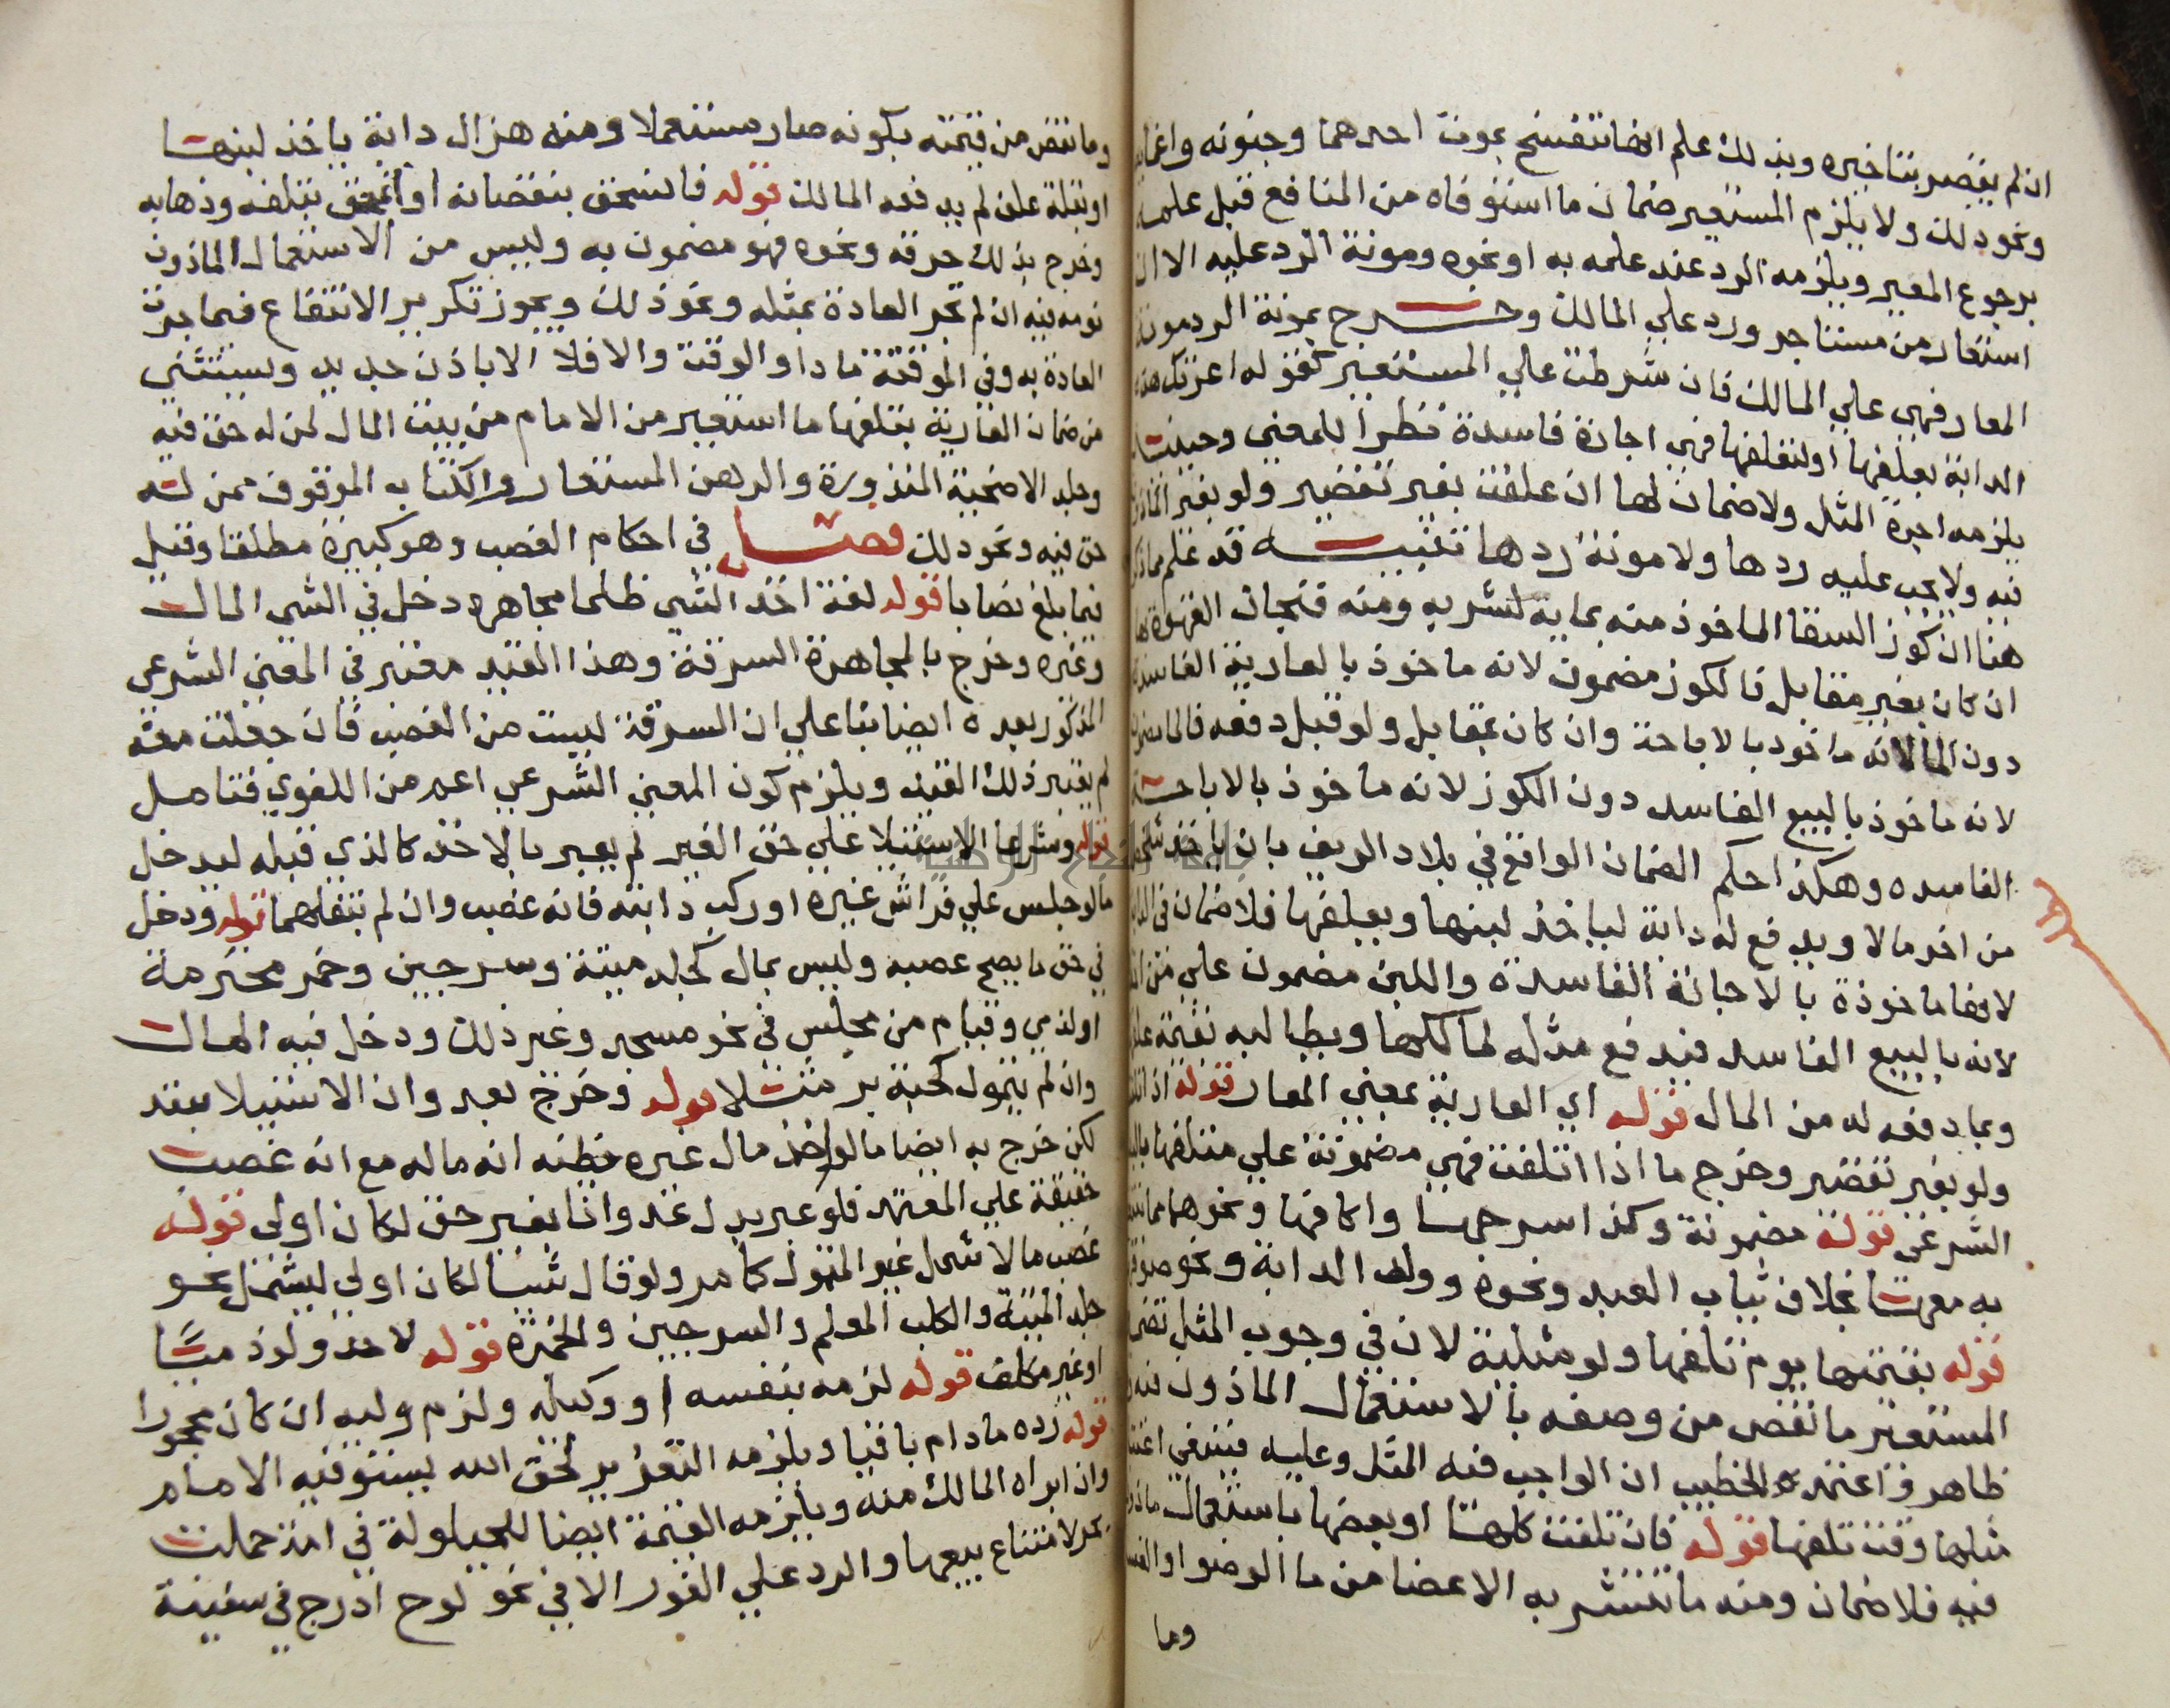 ان لم يقصر بتاخيره وبذلك علم انها تنفسخ بموت احدهما وجنونه واغمايه
ونحو ذلك ولا يلزم المستعير ضمان ما استوفاه من المنافع قبل علمه
برجوع المعير ويلزمه الرد عند علمه به او نحوه ومونة الرد عليه الا ان
استعار من مستاجر ورد علي المالك وخرج بمونة الرد مونة
المعار فهي علي المالك فان شرطت علي المستعير كقوله اعرتك هذه
الدابة بعلفها او لتعلفها فهي اجارة فاسدة نظرا للمعني وحينئذ
يلزمه اجرة المثل ولا ضمان لها ان علفت بغير تقصير ولو بغير الماذون
فيه ولا يجب عليه ردها ولا مونة ردها تنبيه قد علم مما ذكر
هنا ان كوز السقا الماخوذ منه بماية لشربه ومنه فنجان القهوة
ان كان بغير مقابل فالكوز مضمون لانه ماخوذ بالعارية الفاسدة
دون الما لانه ماخوذ بالاباحة وان كان بمقابل ولو قبل دفعه فالما مضمون
لانه ماخوذ بالبيع الفاسد دون الكوز لانه ماخوذ بالاباحة
الفاسده وهكذا حكم الضمان الواقع في بلاد الريف بان ياخذ شخص
من اخر مالا ويدفع له دابة لياخذ لبنها ويعلفها فلا ضمان في الدابة
لانها ماخوذة بالاجارة الفاسدة واللبن مضمون علي من
لانه بالبيع الفاسد فيدفع مثله لمالكها ويطالبه بقيمة علفها
وبما دفعه له من المال قوله اي العارية بمعني المعار قوله اذا تلفت
ولو بغير تقصير وخرج ما اذا اتلفت فهي مضمونة علي متلفها بالبدل
الشرعي قوله مضمونة وكذا سرجها واكافها ونحوهما مما
به معها بخلاف ثياب العبد ونحوه وولد الدابة ونحو صوف
قوله بقيمتها يوم تلفها ولو مثلية لان في وجوب المثل تضمين
المستعير ما نقص من وصفه بالاستعمال الماذون فيه
ظاهر واعتمد الخطيب ان الواجب فيه المثل وعليه فينبغي اعتبار
مثلها وقت تلفها قوله فان تلفت كلها او بعضها باستعمال ماذون
فيه فلا ضمان ومنه ما تنشر به الاعضا من ما الوضوا او الغسل
وما
وما نقص من قيمته بكونه صار مستعملا ومنه هزال دابة ياخذ لبنها
او بقلة علف لم يدفعه المالك قوله فانسحق بنقصانه او انمحق بتلفه وذهابه
وخرج بذلك حرقه ونحوه فهو مضمون به وليس من الاستعمال الماذون
نومه فيه ان لم تجر العادة بمثله ونحو ذلك ويجوز تكرير الانتفاع فيما جرت
العادة به وفي الموقتة ما دام الوقت والا فلا الا باذن جديد ويستثني
من ضمان العارية بتلفها ما استعير من الامام من بيت المال لمن له حق فيه
وجلد الاضحية المنذورة والرهن المستعار والكتاب الموقوف ممن له
حق فيه ونحو ذلك فصل في احكام الغصب وهو كبيرة مطلقا وقيل
فيما بلغ نصابا قوله لغة اخذ الشي ظلما مجاهرة دخل في الشي المال
وغيره وخرج بالمجاهرة السرقة وهذا القيد معتبر في المعني الشرعي
المذكور بعده ايضا بنا علي ان السرقة ليست من الغصب فان جعلت منه
لم يعتبر ذلك القيد ويلزم كون المعني الشرعي اعم من اللغوي فتامل
قوله وشرعا الاستيلا علي حق الغير لم يعبر بالاخذ كالذي قبله ليدخل
ما لو جلس علي فراش غيره او ركب دابته فانه غصب وان لم ينقلهما قوله ودخل
في حق ما يصح غصبه وليس بمال كجلد ميتة وسرجين وخمر محترمة
او لذمي وقيام من مجلس في نحو مسجد وغير ذلك ودخل فيه المال
وان لم يتمول كحبة بر مثلا قوله وخرج بعد وان الاستيلا بعقد
لكن خرج به ايضا ما لو اخذ مال غيره فظنه انه ماله مع انه غصب
حقيقة علي المعتمد فلو عبر بدل عدوانا بغير حق لكان اولي قوله
غصب مالا شمل غير المتمول كما مر ولو قال شيا لكان اولي ليشمل نحو
جلد الميتة والكلب المعلم والسرجين والخمرة قوله لاحد ولو ذميا
او غير مكلف قوله لزمه بنفسه او وكيله ولزم وليه ان كان محجورا
قوله رده ما دام باقيا ويلزمه التعزير لحق الله يستوفيه الامام
وان ابراه المالك منه ويلزمه القيمة ايضا للحيلولة في امة حملت
بحر لامتناع بيعها والرد علي الفور الا في نحو لوح ادرج في سفينة